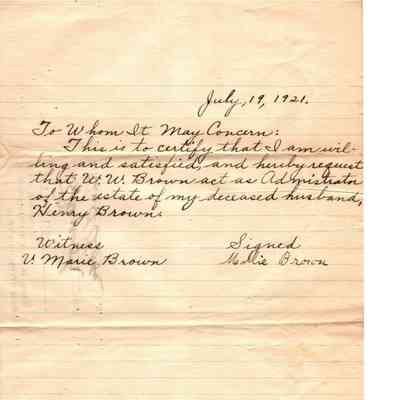 July, 19, 1921.
To Whom It May Concern:
This is to certify that I am wil-
ling and satisfied, and hereby request
that W. W. Brown act as Admistrator
of the estate of my deceased husband,
Henry Brown.
Witness Signed
V. Marie Brown Mollie Brown